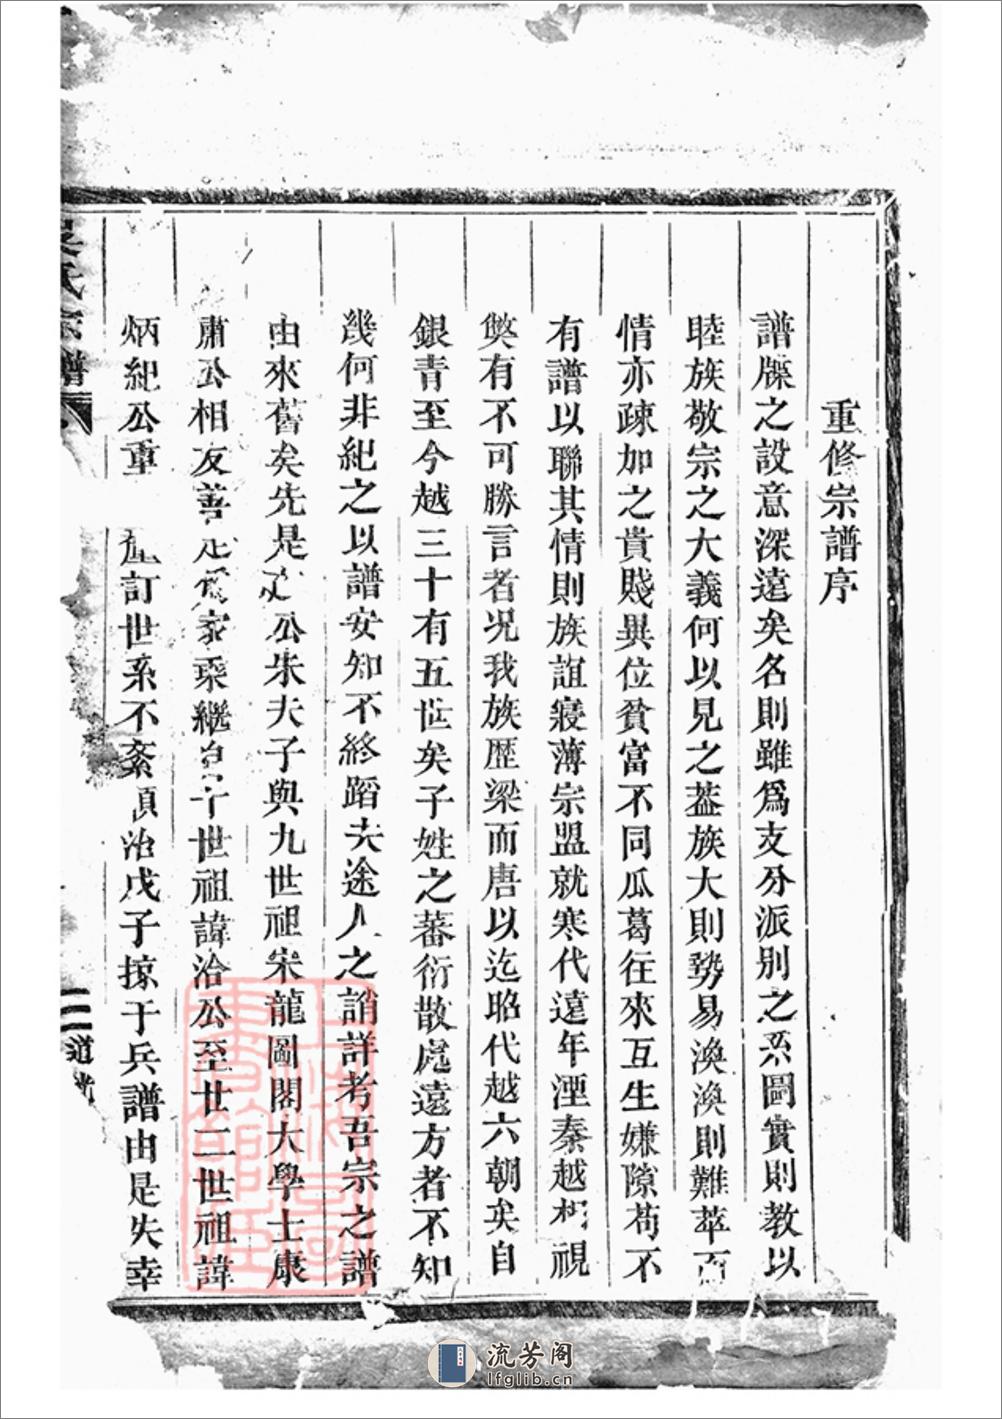 重修宗譜序
譜牒之設意深遠矣名則雖爲支分派別之系圖實則教以
睦族敬宗之大義何以見之葢族大則勢易渙渙則難萃而
情亦疎加之貴賤異位貧富不同瓜葛往來互生嫌隙苟不
有譜以聯其情則族誼寖薄宗盟就寒代遠年湮秦越相視
獘有不可勝言者况我族歴梁而唐以迄昭代越六朝矣自
銀青至今越三十有五世矣子姓之蕃衍散處遠方者不知
幾何非紀之以譜安知不終蹈夫途人之誚詳考吾宗之譜
由來舊矣先是文公朱夫子與九世祖宋龍圖閣大學士康
肅公相友善 爲家乘繼 十世祖諱治公至廿二世祖諱
炳紀公重 訂世系不紊順治戊子掠于兵譜由是失幸
吳氏宗譜
二 道光
上海圖書館藏
流芳阁
lfglib.cn